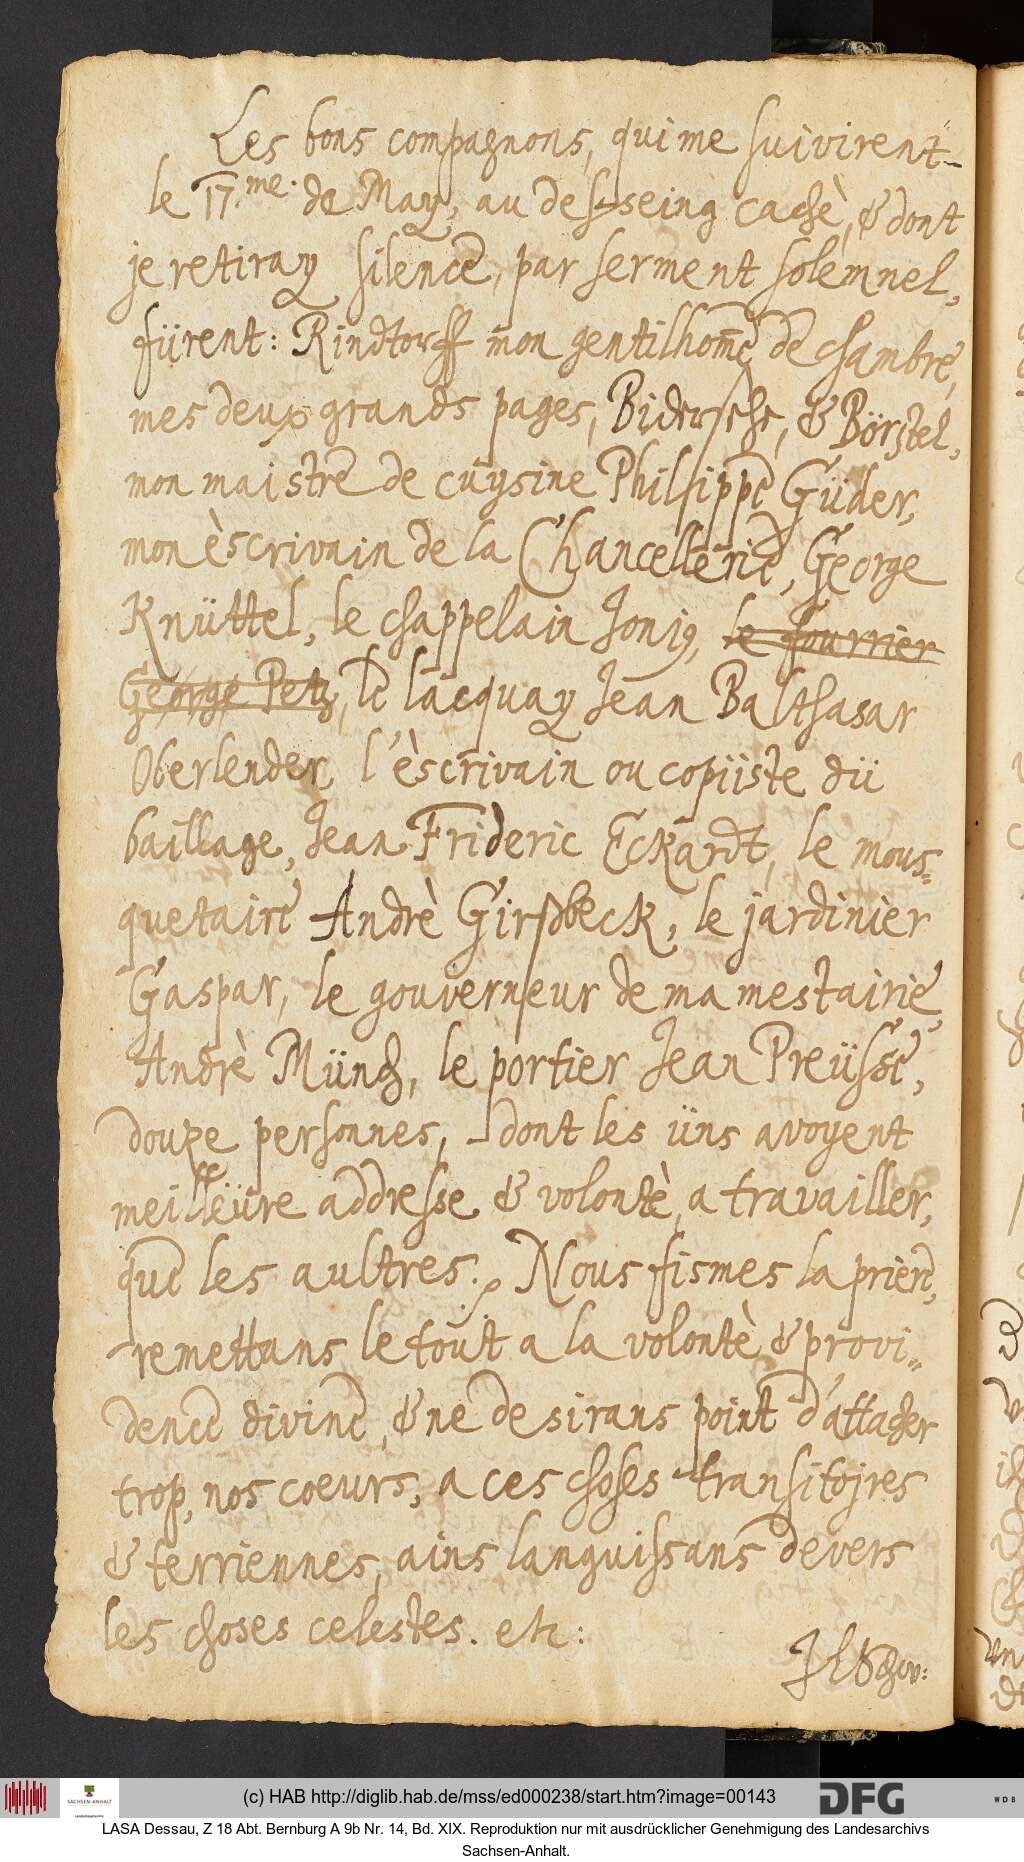 Les bons compagnons, qui me suivirent
le 17.me. de May, au desseing cachè, & dont
je retiray silence, par serment solemnel,
fürent: Rindtorff mon gentilhom̄e de chambre,
mes deux grands pages, Bidersehe, & Börstel,
mon maistre de cuysine Philippe Güder,
mon èscrivain de la Chancellerie, George
Knüttel, le chappelain Jonig, le fourrier
George Petz, le lacquay Jean Balthasar
Oberlender, l'èscrivain ou copiiste dü
baillage, Jean Frideric Eckardt, le mous-
quetaire Andrè Girßbeck, le jardinier
Gaspar, le gouverneur de ma mestairie,
Andrè Münch, le portier Jean Preüsse,
douze personnes, dont les üns avoyent
meilleüre addresse & volontè, a travailler,
que les aultres. Nous fismes la priere,
remettans le tout a la volontè & provi-
dence divine, & ne desirans point d'attacher
trop, nos coeurs, a ces choses transitojres
& terriennes, ains languissans devers
les choses celestes. etc:
(c) HAB http://diglib.hab.de/mss/ed000238/start.htm?image=00143
SACHSEN-ANHALT
DFG
WDB
LASA Dessau, Z 18 Abt. Bernburg A 9b Nr. 14, Bd. XIX. Reproduktion nur mit ausdrücklicher Genehmigung des Landesarchivs
Sachsen-Anhalt.